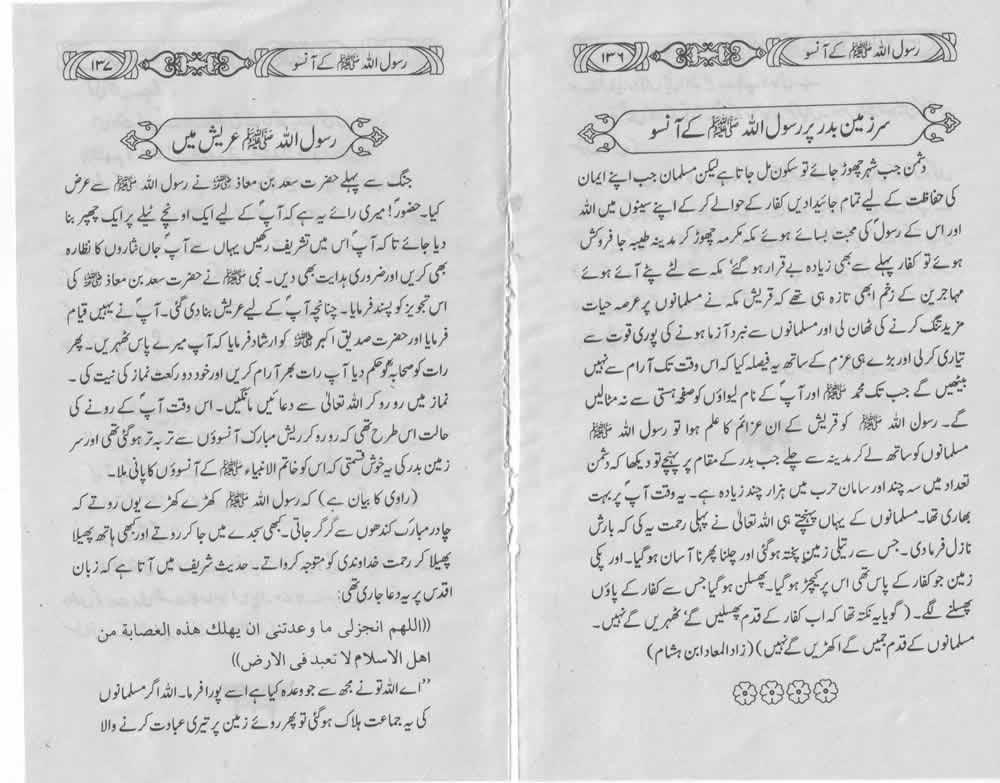 رسول اللہ ﷺ کے آنسو
۱۳۶
سرزمین بدر پر رسول اللہ ﷺ کے آنسو
دشمن جب شہر چھوڑ جائے تو سکون مل جاتا ہے لیکن مسلمان جب اپنے ایمان
کی حفاظت کے لیے تمام جائیدادیں کفار کے حوالے کر کے اپنے سینوں میں اللہ
اور اس کے رسولؐ کی محبت بسائے ہوئے مکہ مکرمہ چھوڑ کر مدینہ طیبہ جا فروکش
ہوئے تو کفار پہلے سے بھی زیادہ بے قرار ہو گئے، مکہ سے لٹے پٹے آئے ہوئے
مہاجرین کے زخم ابھی تازہ ہی تھے کہ قریش مکہ نے مسلمانوں پر عرصہ حیات
مزید تنگ کرنے کی ٹھان لی اور مسلمانوں سے نبرد آزما ہونے کی پوری قوت سے
تیاری کر لی اور بڑے ہی عزم کے ساتھ یہ فیصلہ کیا کہ اس وقت تک آرام سے نہیں
بیٹھیں گے جب تک محمد ﷺ اور آپؐ کے نام لیواؤں کو صفحہ ہستی سے نہ مٹا لیں
گے۔ رسول اللہ ﷺ کو قریش کے ان عزائم کا علم ہوا تو رسول اللہ ﷺ
مسلمانوں کو ساتھ لے کر مدینہ سے چلے جب بدر کے مقام پر پہنچے تو دیکھا کہ دشمن
تعداد میں سہ چند اور سامان حرب میں ہزار چند زیادہ ہے۔ یہ وقت آپؐ پر بہت
بھاری تھا۔ مسلمانوں کے یہاں پہنچتے ہی اللہ تعالیٰ نے پہلی رحمت یہ کی کہ بارش
نازل فرما دی۔ جس سے ریتلی زمین پختہ ہو گئی اور چلنا پھرنا آسان ہو گیا۔ اور پکی
زمین جو کفار کے پاس تھی اس پر کیچڑ ہو گیا۔ پھسلن ہو گیا جس سے کفار کے پاؤں
پھسلنے لگے۔ (گویا یہ نکتہ تھا کہ اب کفار کے قدم پھسلیں گے ٹھہریں گے نہیں۔
مسلمانوں کے قدم جمیں گے اکھڑیں گے نہیں) (زاد المعاد ابن ہشام)
رسول اللہ ﷺ کے آنسو
۱۳۷
رسول اللہ ﷺ عریش میں
جنگ سے پہلے حضرت سعد بن معاذ ؓ نے رسول اللہ ﷺ سے عرض
کیا۔ حضورؐ! میری رائے یہ ہے کہ آپؐ کے لیے ایک اونچے ٹیلے پر ایک چھپر بنا
دیا جائے تا کہ آپؐ اس میں تشریف رکھیں یہاں سے آپؐ جاں نثاروں کا نظارہ
بھی کریں اور ضروری ہدایت بھی دیں۔ نبی ﷺ نے حضرت سعد بن معاذ ؓ کی
اس تجویز کو پسند فرمایا۔ چنانچہ آپ کے لیے عریش بنا دی گئی۔ آپؐ نے یہیں قیام
فرمایا اور حضرت صدیق اکبر ؓ کو ارشاد فرمایا کہ آپ میرے پاس ٹھہریں۔ پھر
رات کو صحابہؓ کو حکم دیا آپ رات بھر آرام کریں اور خود دو رکعت نماز کی نیت کی۔
نماز میں رو رو کر اللہ تعالیٰ سے دعائیں مانگیں۔ اس وقت آپؐ کے رونے کی
حالت اس طرح تھی کہ رو رو کر ریش مبارک آنسوؤں سے تر بہ تر ہو گئی تھی اور سر
زمین بدر کی یہ خوش قسمتی کہ اس کو خاتم الانبیاء ﷺ کے آنسوؤں کا پانی ملا۔
(راوی کا بیان ہے) کہ رسول اللہ ﷺ کھڑے کھڑے یوں روتے کہ
چادر مبارک کندھوں سے گر گر جاتی۔ کبھی سجدے میں جا کر روتے اور کبھی ہاتھ پھیلا
پھیلا کر رحمت خداوندی کو متوجہ کرواتے۔ حدیث شریف میں آتا ہے کہ زبان
اقدس پر یہ دعا جاری تھی:
((اللھم انجزلی ما وعدتنی ان یھلك ھذه الغصابة من
اھل الاسلام لا تعبد فی الارض))
”اے اللہ تو نے مجھ سے جو وعدہ کیا ہے اسے پورا فرما۔ اللہ اگر مسلمانوں
کی یہ جماعت ہلاک ہو گئی تو پھر روئے زمین پر تیری عبادت کرنے والا